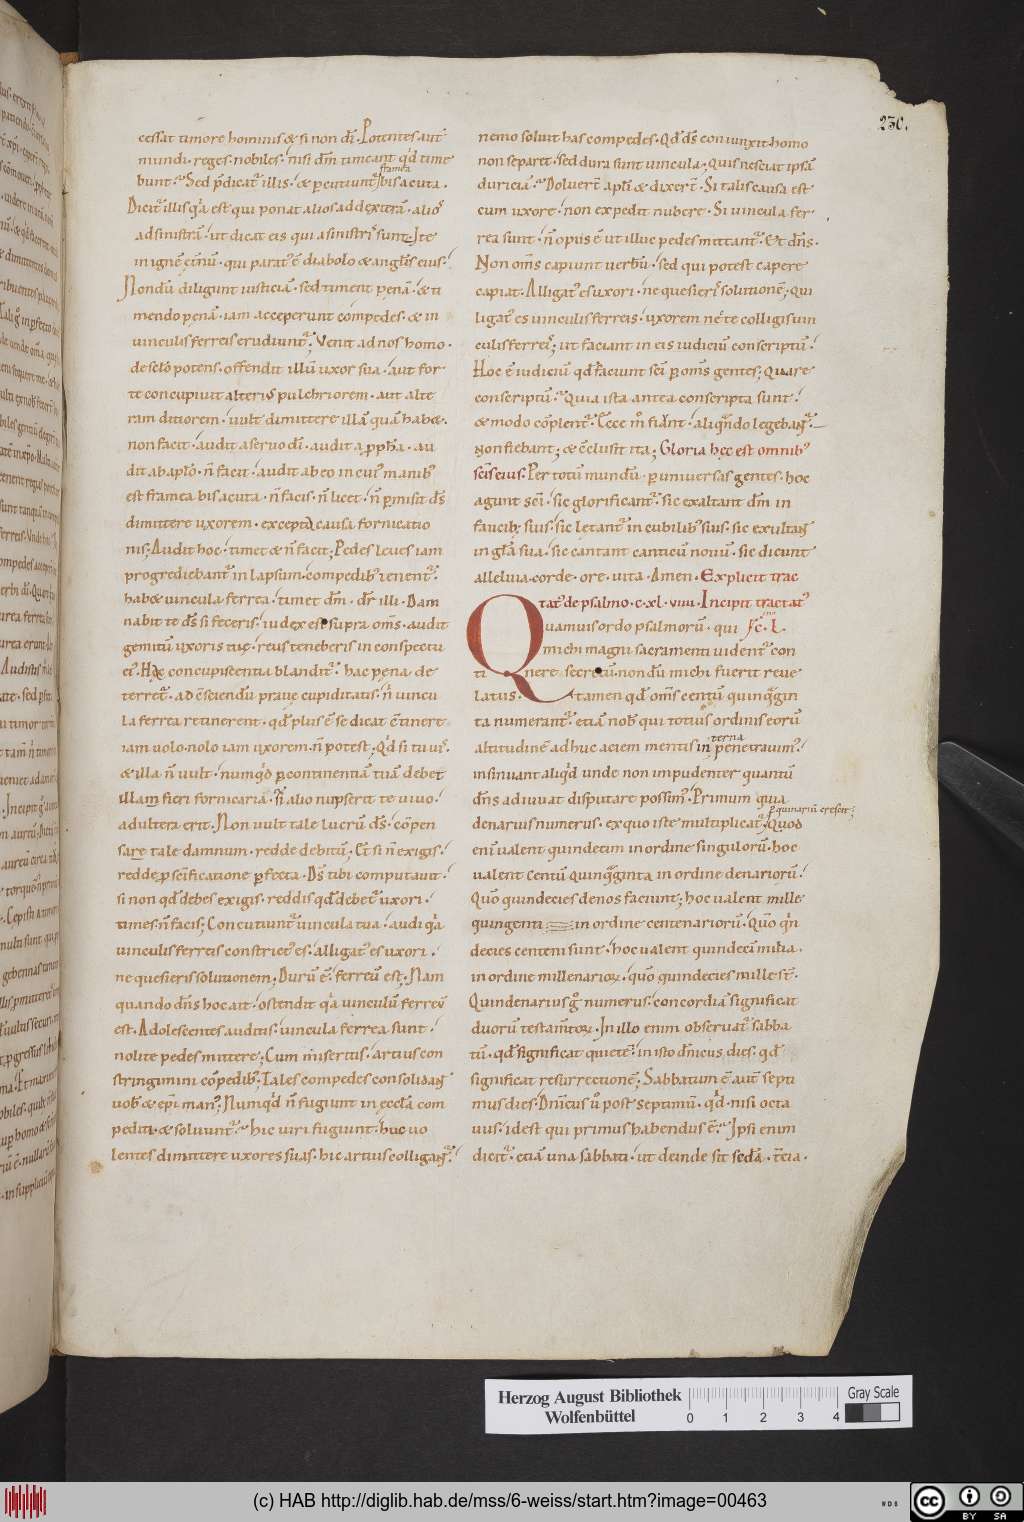 230.
cessat timore hominis & si non dī. Potentes aut̄
mundi. reges. nobiles. nisi dm̄ timeant qd time
bunt. Sed p̄dicat illis. & percutiunt bis acuta.
framea
Dicit illis qa est qui ponat alios ad dexterā. alios
ad sinistrā. ut dicat eis qui a sinistris sunt. Ite
in ignē et̄nū. qui parat ē diabolo & anglis eius.
Nondū diligunt iusticiā. sed timent penā. & ti
mendo penā. iam acceperunt compedes. & in
uinculis ferreis erudiunt. Venit ad nos homo.
de sclo potens. offendit illū uxor sua. aut for
te concupiuit alterius pulchriorem. aut alte
ram ditiorem. uult dimittere illā quā habet.
non facit. audit a seruo dī. audit a ppha. au
dit ab aplo. n̄ facit. audit ab eo in cui manib
est framea bis acuta. n̄ facis. n̄ licet. n̄ pmisit ds̄
dimittere uxorem. excepta causa fornicatio
nis; Audit hoc. timet & n̄ facit; Pedes leues iam
progrediebant in lapsum. compedib tenent.
habet uincula ferrea. timet dm̄. dr̄ illi. Dam
nabit te ds̄ si feceris. iudex est supra oms̄. audit
gemitū uxoris tuę. reus teneberis in conspectu
ei. Hac concupiscentia blandit. hac pena. de
terret. ad ē sciendū praue cupiditatis. ni uincu
la ferrea retinerent. qd plus ē se dicat ētinere
iam uolo. nolo iam uxorem. n̄ potest; Qd si tu uis.
& illa n̄ uult. numqd p continentiā tuā debet
illam fieri fornicariā. Si alio nupserit te uiuo.
adultera erit. Non uult tale lucrū ds̄. cōpen
sare tale damnum. redde debitū; Et si n̄ exigis.
redde; p scificatione pfecta. Ds̄ tibi computauit.
si non qd debes exigis. reddis qd debet uxori.
times. n̄ facis; Concutiunt uincula tua. audi qa
uinculis ferreis constrictus es. alligat es uxori.
ne quesieris solutionem; Durū ē. ferreū est; Nam
quando dn̄s hoc ait. ostendit qa uinculū ferreū
est. Adolescentes auditis. uincula ferrea sunt.
nolite pedes mittere; Cum miseritis. artius con
stringimini cōpedib; Tales compedes consolidant
uob & epi man; Numqd n̄ fugiunt in eccla com
pediti. & soluunt. hic uiri fugiunt. huc uo
lentes dimittere uxores suas. hic artius colligant.
nemo soluit has compedes. Qd ds̄ coniunxit homo
non separet. sed dura sunt uincula. quis nesciat ipsā
duriciā. Doluert̄ apli & dixert̄. Si talis causa est
cum uxore. non expedit nubere. Si uincula fer
rea sunt. n̄ opus ē ut illuc pedes mittant. Et dn̄s.
Non oms̄ capiunt uerbū. sed qui potest capere
capiat. Alligat es uxori. ne quesieris solutionē; qui
ligat es uinculis ferreis. uxorem nē te colligis uin
culis ferreis; ut faciant in eis iudiciū conscriptū.
Hoc ē iudiciū qd faciunt sci p oms̄ gentes; Quare
conscriptū. Quia ista antea conscripta sunt.
& modo cōplent. Ecce mo fiunt. aliqndo legebant.
Non fiebant; & ēclusit ita; Gloria hęc est omnib
scis eius. Per totū mundū. p uniuersas gentes. hoc
agunt sci. sic glorificant. sic exaltant dm̄ in
faucib; suis. sic lętant in cubilib suis. sic exultant
in gla sua. sic cantant canticū nouū. sic dicunt
alleluia. corde. ore. uita. Amen. Explicit trac
tat de psalmo. c. xl. viiii. Incipit tractat
Quamuis ordo psalmorū. qui
michi magni sacramenti uident con
tinere secretū. nondū michi fuerit reue
latus. tamen qd oms̄ centū quinqgin
ta numerant. etiā nob qui totius ordinis eorū
altitudinē adhuc aciem mentis in penetrauim.
terna
insinuant aliqd unde non impudenter quantū
dn̄s adiuuat disputare possim. Primum quia
p quinariū crescit;
denarius numerus. ex quo iste multiplicat. Quod
eni ualent quindecim in ordine singulorū. hoc
ualent centū quinqginta in ordine denariorū.
Quō quindecies denos faciunt; hoc ualent mille
quingenti in ordine centenariorū. Quō qn
decies centeni sunt. hoc ualent quindeci milia.
in ordine millenarioꝝ. quō quindecies mille st̄.
Quindenarius g numerus. concordiā significat
duorū testamtoꝝ. In illo enim obseruat sabba
tū. qd significat quietē. in isto dnicus dies. qd
significat resurrectionē; Sabbatum ē. aut̄ septi
mus dies. Dn̄icus u post septimū. qd nisi octa
uus. id est qui primus habendus ē. Ipsi enim
dicit. etiā una sabbati. ut deinde sit sedā. t̄cia.
Herzog August Bibliothek
Wolfenbüttel
0 1 2 3 4
Gray Scale
(c) HAB http://diglib.hab.de/mss/6-weiss/start.htm?image=00463
cc BY SA